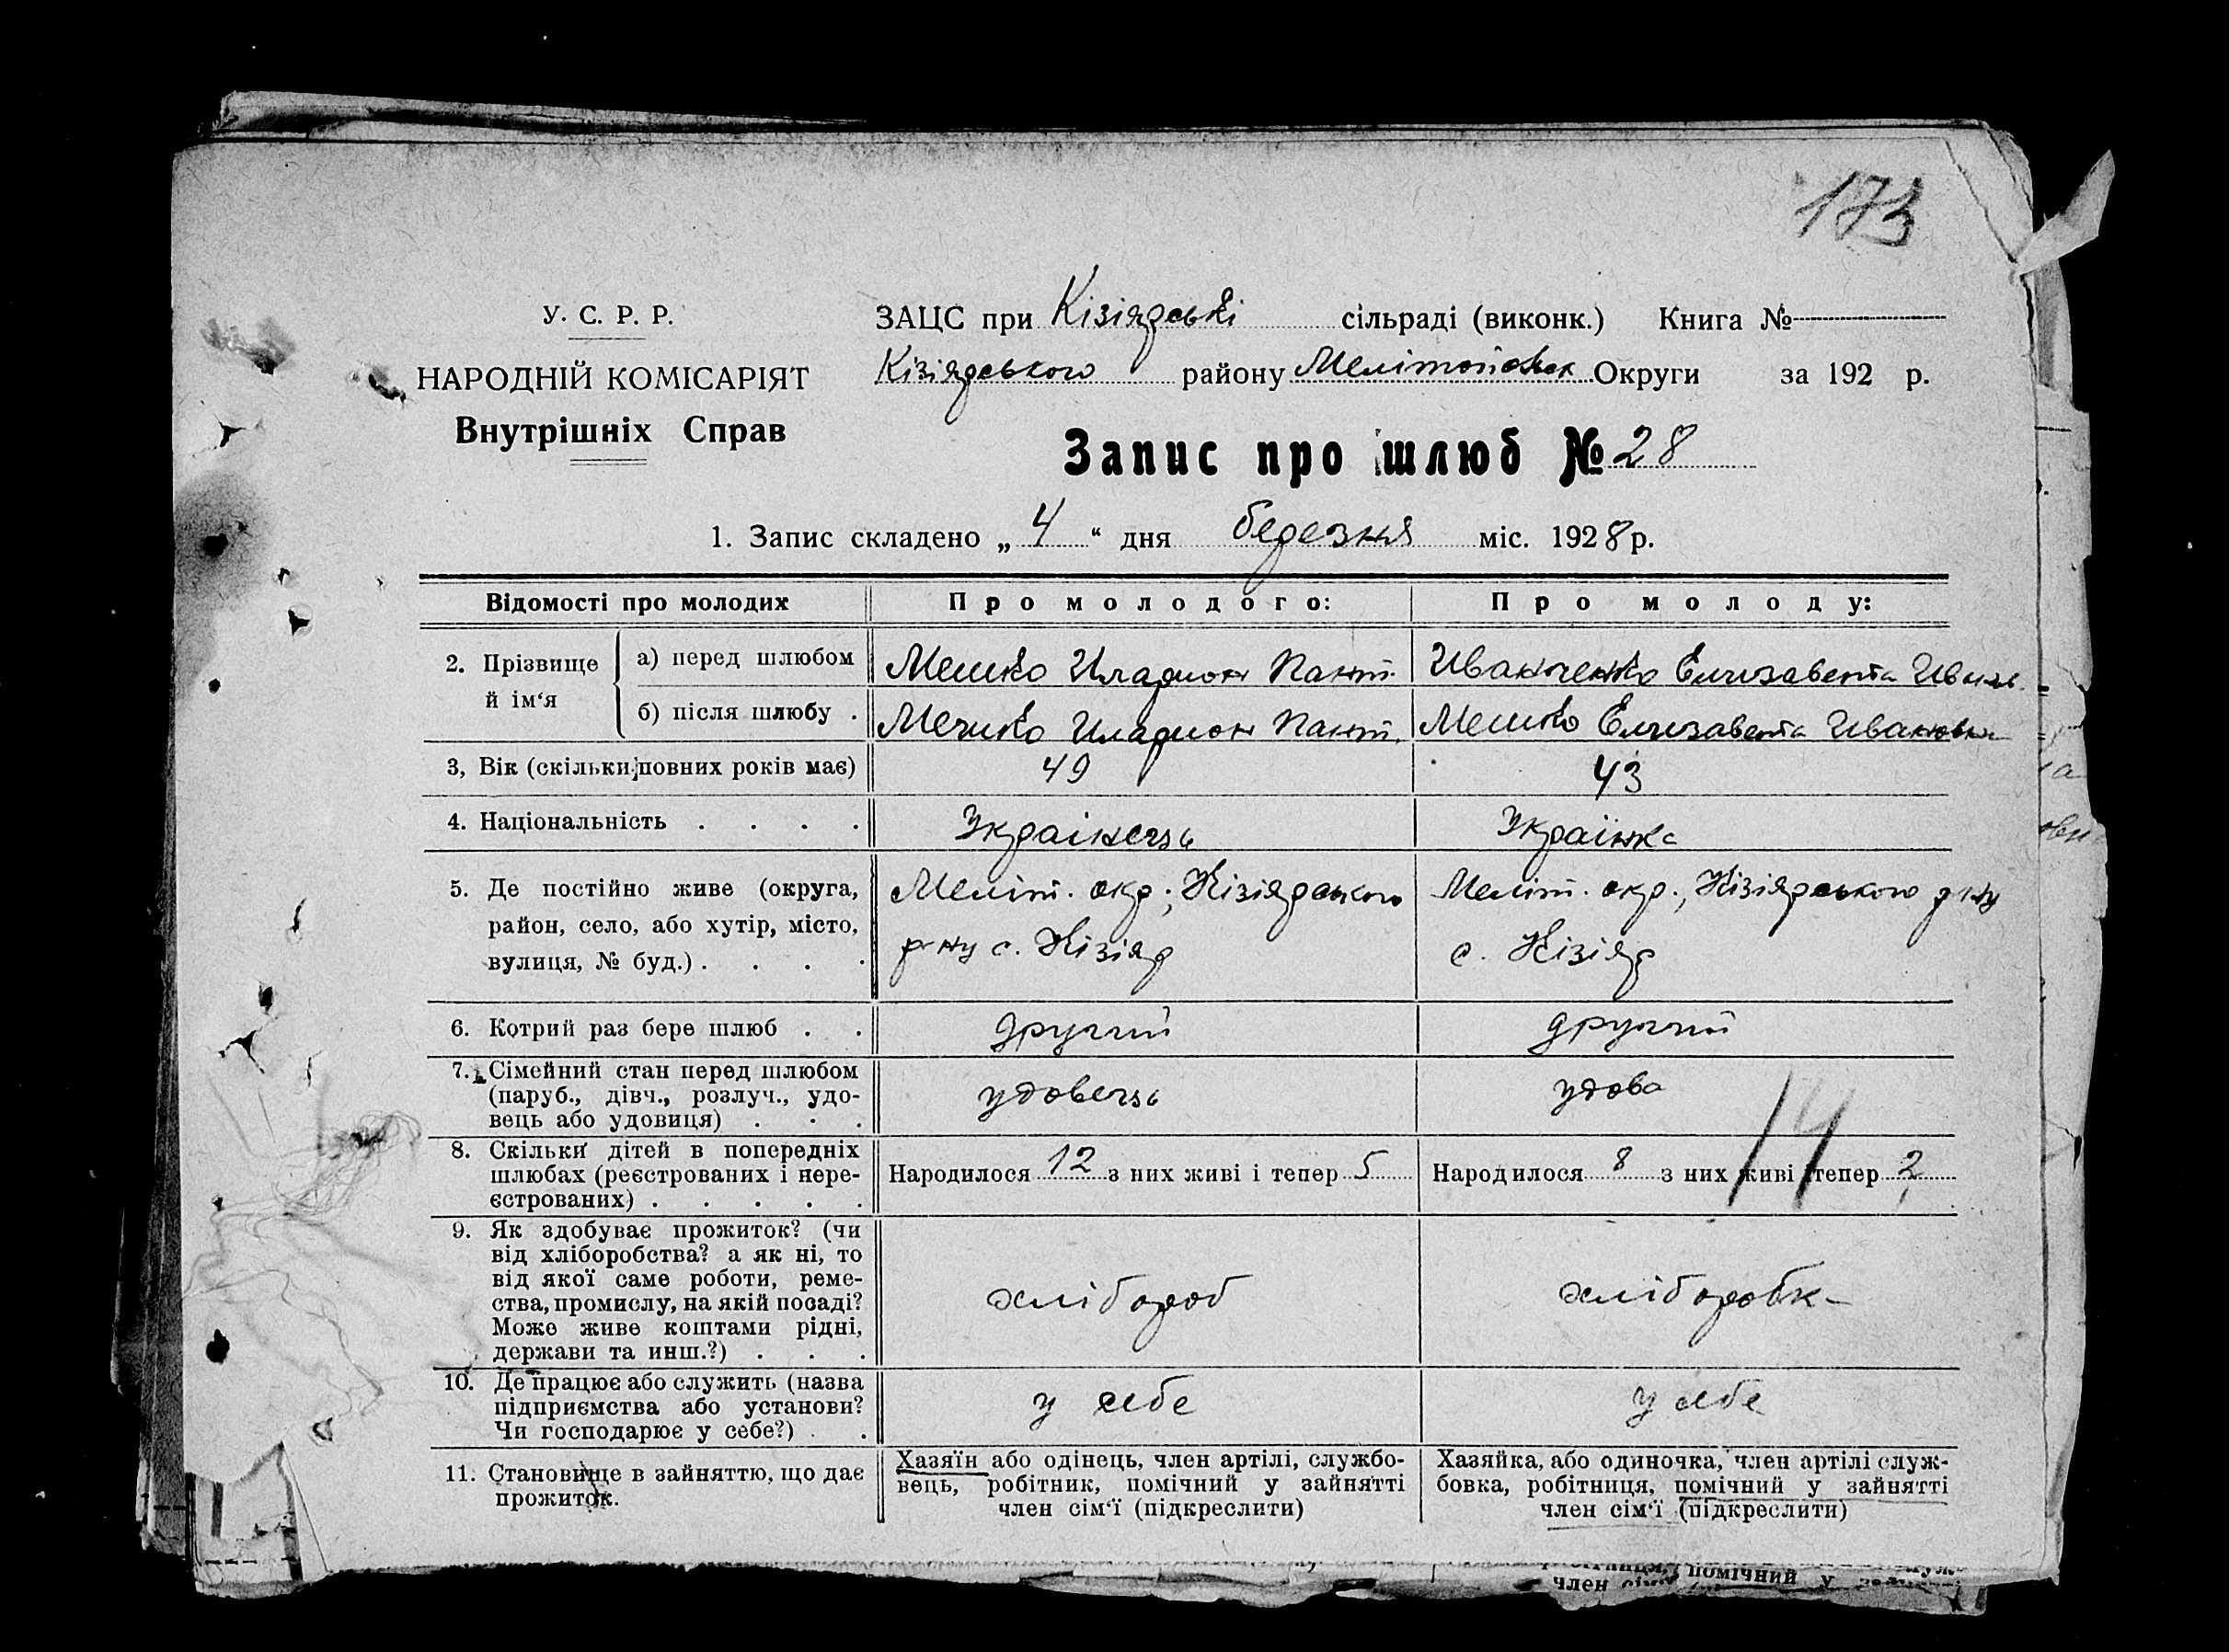 173
У. С. Р. Р.
НАРОДНІЙ КОМІСАРІЯТ
Внутрішніх Справ
ЗАЦС при Кізіярські сільраді (виконк.) Книга №
Кізіярського району Мелітопольськ Округи за 192 р.
Запис про шлюб № 28
1. Запис складено „ 4 “ дня березня міс. 1928 р.
Відомості про молодих Про молодого: Про молоду:
2. Прізвище й ім‘я
а) перед шлюбом Мешко Иларион Пант. Иванченко Елизавета Иван.
б) після шлюбу . Мешко Иларион Пант. Мешко Елизавета Ивановна
3, Вік (скільки повних років має) 49 43
4. Національність . . . . Українець Українка
5. Де постійно живе (округа,
район, село, або хутір, місто,
вулиця, № буд.) . . . .
Меліт. окр.; Кізіярського
р-ну с. Кізіяр
Меліт. окр., Кізіярського р-ну
с. Кізіяр
6. Котрий раз бере шлюб . . другий другий
7. Сімейний стан перед шлюбом
(паруб., дівч., розлуч., удо-
вець або удовиця) . . .
удовець удова
8. Скільки дітей в попередніх
шлюбах (реєстрованих і нере-
єстрованих) . . . . .
Народилося 12 з них живі і тепер 5
Народилося 8 з них живі і тепер 2
14
9. Як здобуває прожиток? (чи
від хліборобства? а як ні, то
від якої саме роботи, реме-
ства, промислу, на якій посаді?
Може живе коштами рідні,
держави та инш.?) . . .
хлібороб хліборобк
10. Де працює або служить (назва
підприємства або установи?
Чи господарює у себе?) . .
у себе у себе
11. Становище в зайняттю, що дає
прожиток.
Хазяїн або одінець, член артілі, службо-
вець, робітник, помічний у зайнятті
член сім‘ї (підкреслити)
Хазяйка, або одиночка, член артілі служ-
бовка, робітниця, помічний у зайнятті
член сім‘ї (підкреслити)
помічний у
член